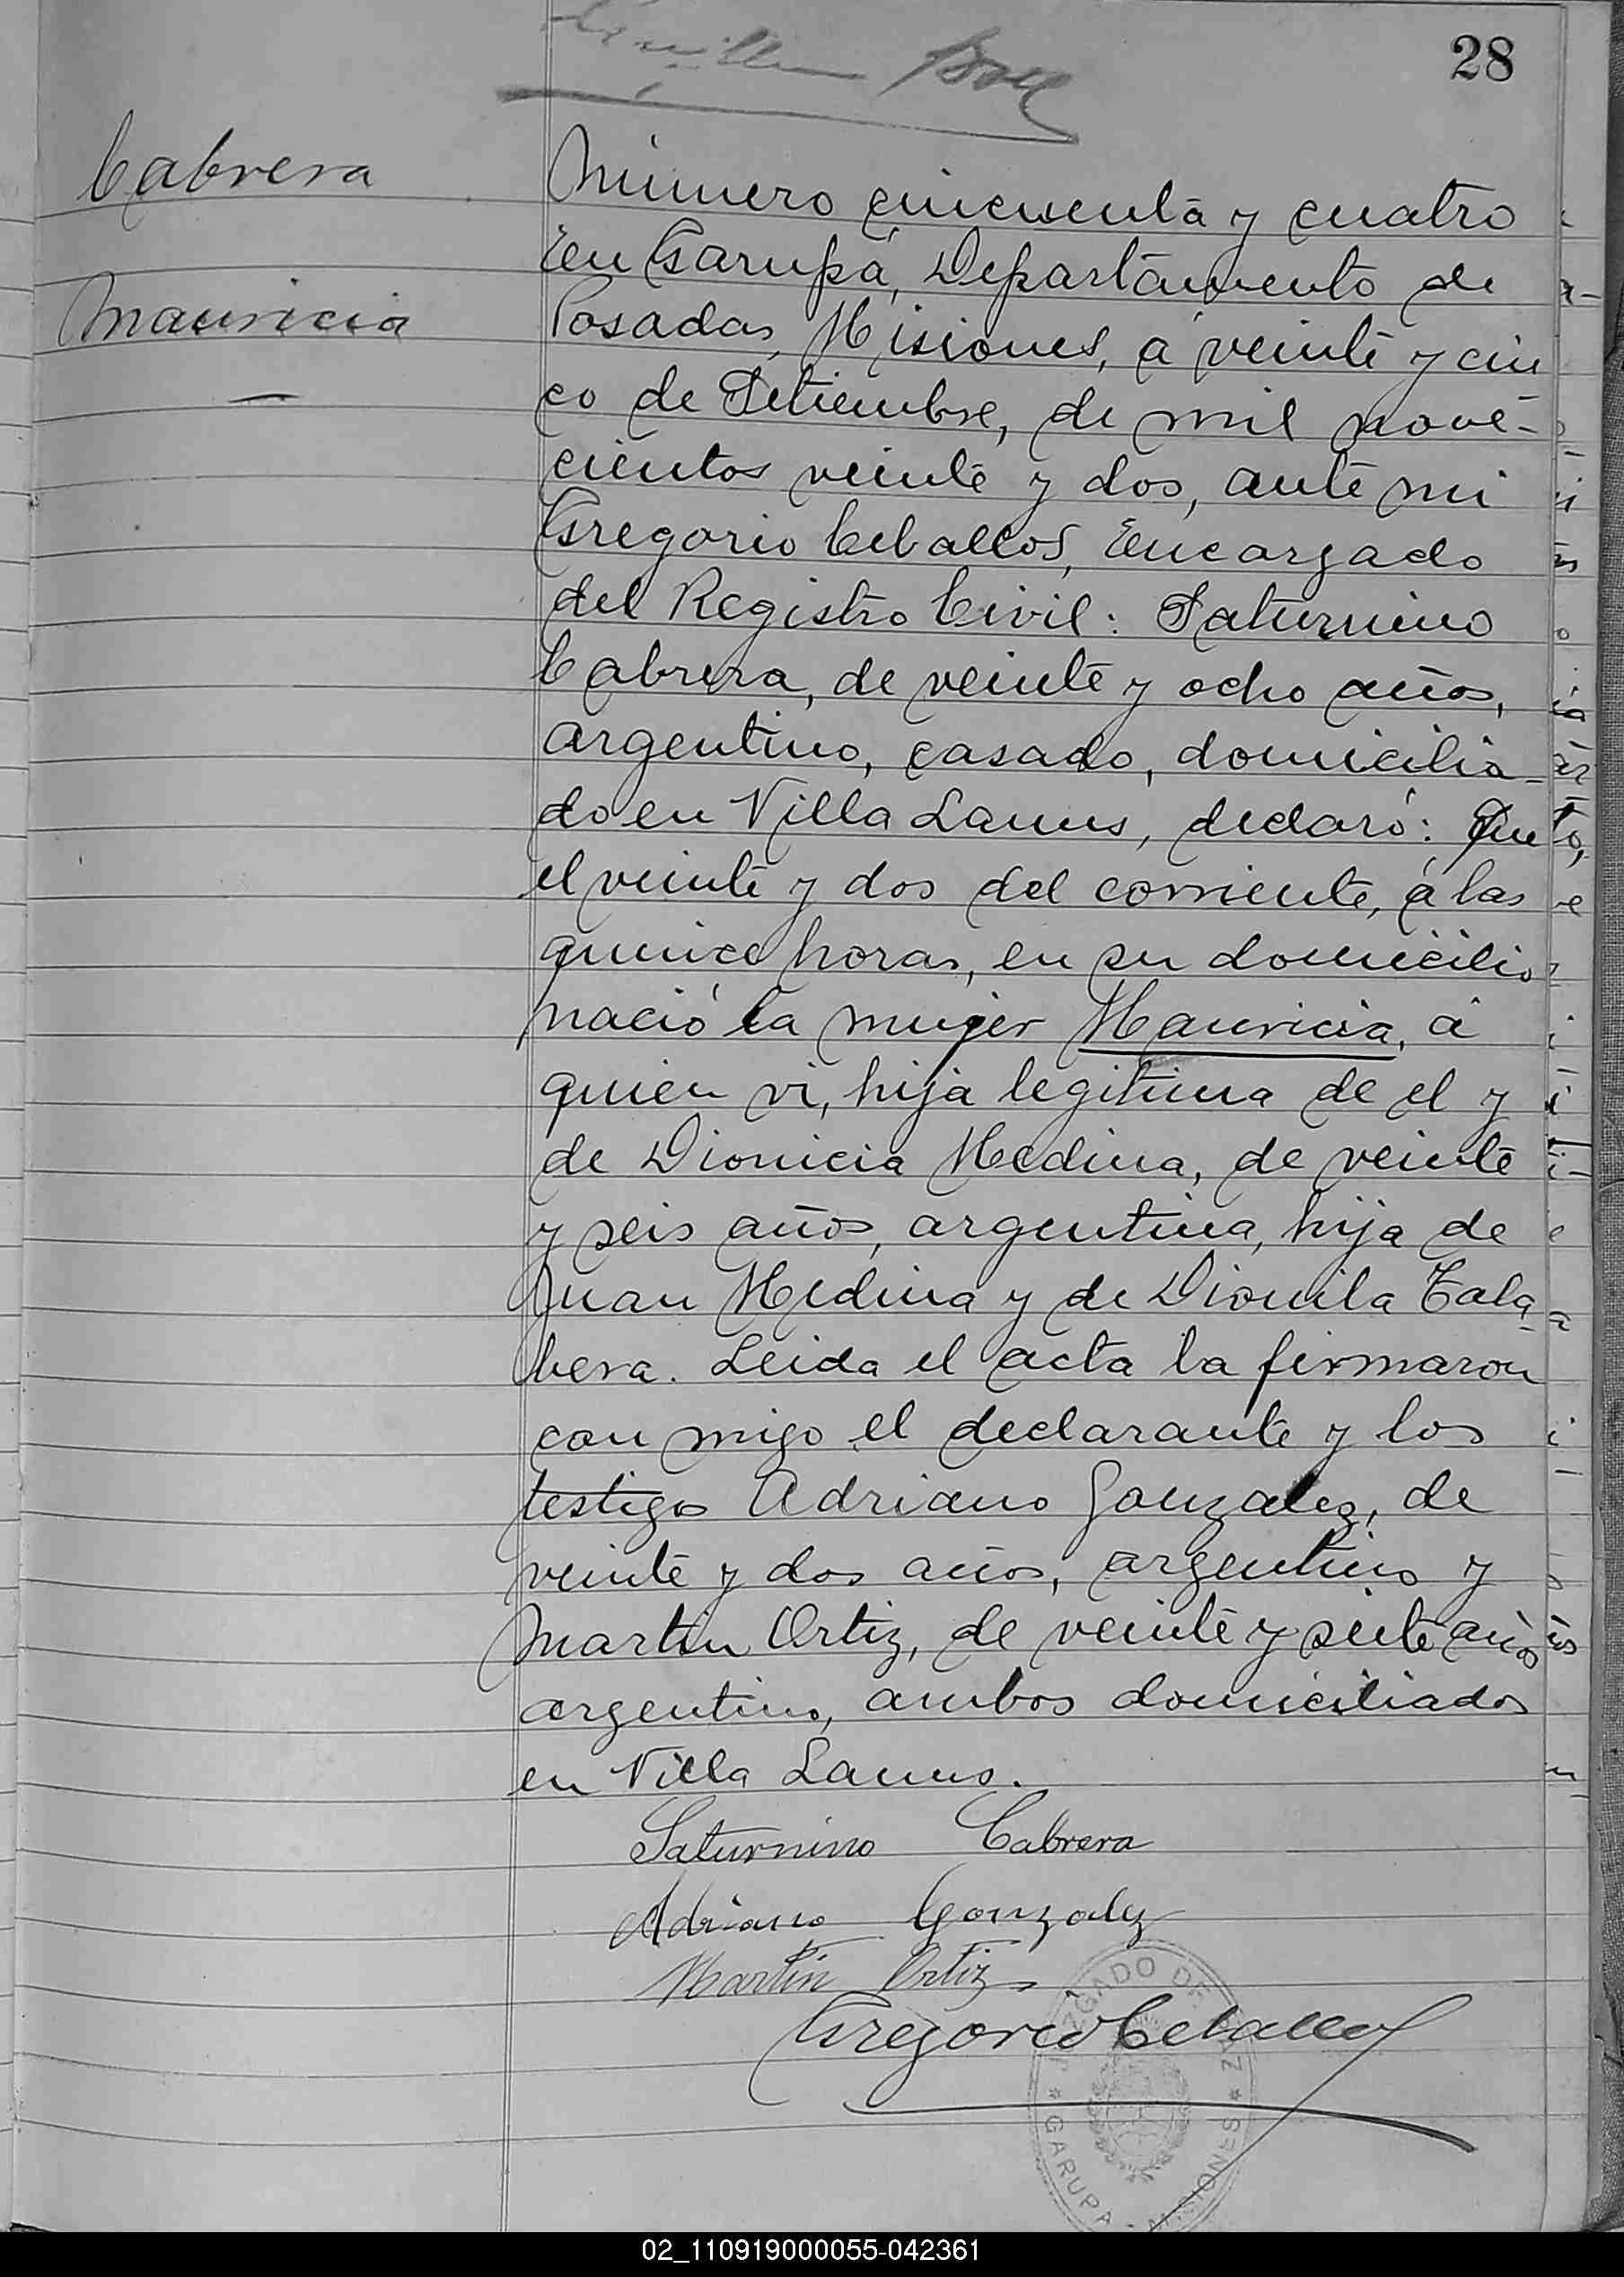 28
Cabrera
Mauricia
Número cincuenta y cuatro
En Garupá, Departamento de
Posadas, Misiones, á veinte y cin
co de Setiembre, de mil nove-
cientos veinte y dos, ante mi
Gregorio Ceballos, Encargado
del Registro Civil: Saturnino
Cabrera, de veinte y ocho años,
argentino, casado, domicilia-
do en Villa Lanus, declaró: Que
el veinte y dos del corriente, á las
quince horas, en su domicilio
nació la mujer Mauricia, á
quien vi, hija legitima de el y
de Dionicia Medina, de veinte
y seis años, argentina, hija de
Juan Medina y de Dionila Tala
bera. Leida el acta la firmaron
con migo el declarante y los
testigos Adriano Gonzalez, de
veinte y dos años, argentino y
Martin Ortiz, de veinte y siete años
argentino, ambos domiciliados
en Villa Lanus.
Saturnino Cabrera
Adriano Gonzalez
Martin Ortiz
Gregorio Ceballos
JUZGADO DE PAZ * GARUPA - MISIONES *
02_110919000055-042361